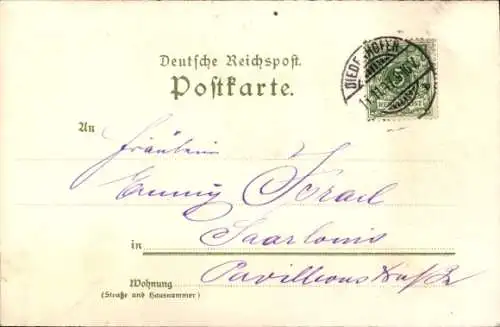 Deutsche Reichspost.
Postkarte.
DIEDENHOFEN
An
Fräulein
Emmy Israel
in Saarlouis
Pavillionstraße
Wohnung
(Straße und Hausnummer)